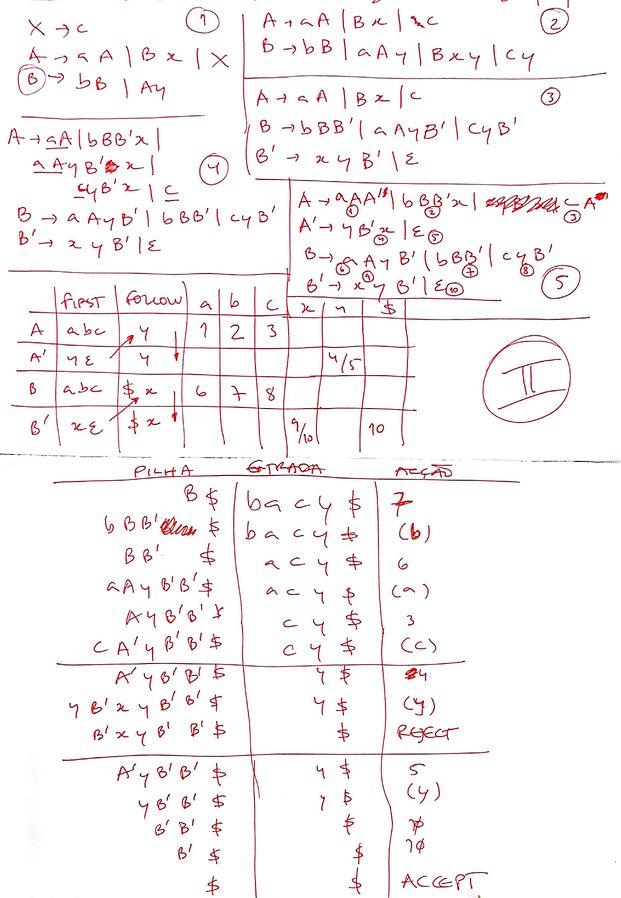 X → c ①
A → aA | Bx | X
B → bB | Ay
A → aA | Bx | c ②
B → bB | aAy | Bxy | cy
A → aA | Bx | c ③
B → bBB' | aAyB' | cyB'
B' → xyB' | ε
A → aA | bBB'x |
aAyB'x | ④
cyB'x | c
B → aAyB' | bBB' | cyB'
B' → xyB' | ε
A → aAA' | bBB'x | cA'
① ② ③
A' → yB'x | ε⑤
④
B → aAyB' | bBB' | cyB'
⑥ ⑦ ⑧
B' → xyB' | ε⑩ ⑤
⑨
FIRST FOLLOW a b c x y $
A abc y 1 2 3
A' yε y 4/5
B abc $ x 6 7 8
B' xε $ x 9/10 10
II
PILHA ENTRADA ACÇÃO
B $ b a c y $ 7
b B B' $ b a c y $ (b)
B B' $ a c y $ 6
a A y B' B' $ a c y $ (a)
A y B' B' $ c y $ 3
c A' y B' B' $ c y $ (c)
A' y B' B' $ y $ 4
y B' x y B' B' $ y $ (y)
B' x y B' B' $ $ REJECT
A' y B' B' $ y $ 5
y B' B' $ y $ (y)
B' B' $ $ 10
B' $ $ 10
$ $ ACCEPT